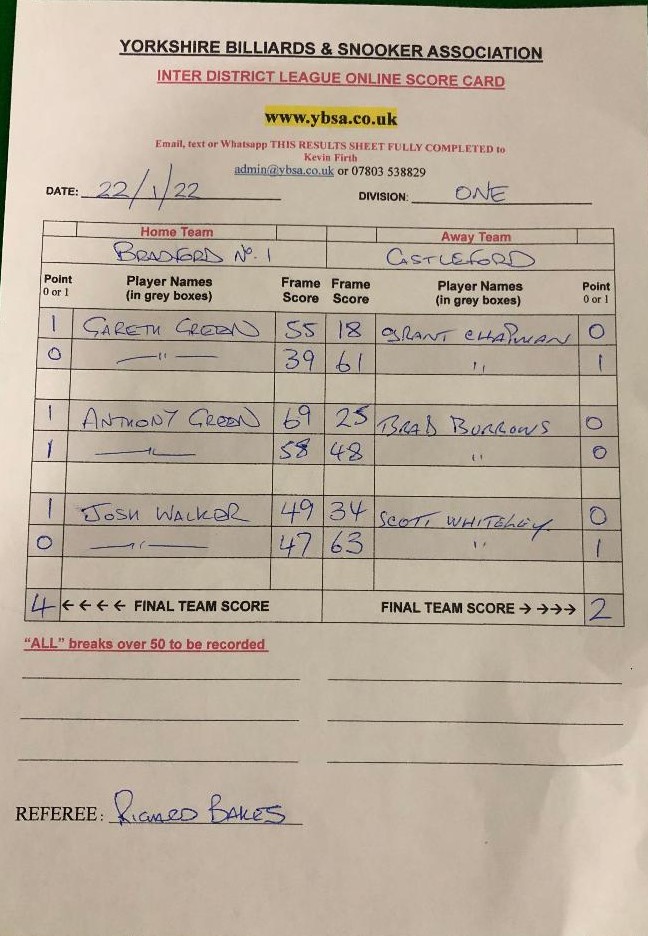 YORKSHIRE BILLIARDS & SNOOKER ASSOCIATION
INTER DISTRICT LEAGUE ONLINE SCORE CARD
www.ybsa.co.uk
Email, text or Whatsapp THIS RESULTS SHEET FULLY COMPLETED to
Kevin Firth
admin@ybsa.co.uk or 07803 538829
DATE: 22/1/22 DIVISION: ONE
Home Team Away Team
BRADFORD No. 1 CASTLEFORD
Point Player Names Frame Frame Player Names Point
0 or 1 (in grey boxes) Score Score (in grey boxes) 0 or 1
1 GARETH GREEN 55 18 GRANT CHAPMAN 0
0 —"— 39 61 " 1
1 ANTHONY GREEN 69 25 BRAD BURROWS 0
1 —"— 58 48 " 0
1 JOSH WALKER 49 34 SCOTT WHITELEY 0
0 —"— 47 63 " 1
4 ←←←← FINAL TEAM SCORE FINAL TEAM SCORE →→→→ 2
"ALL" breaks over 50 to be recorded
REFEREE: RICHARD BAKES